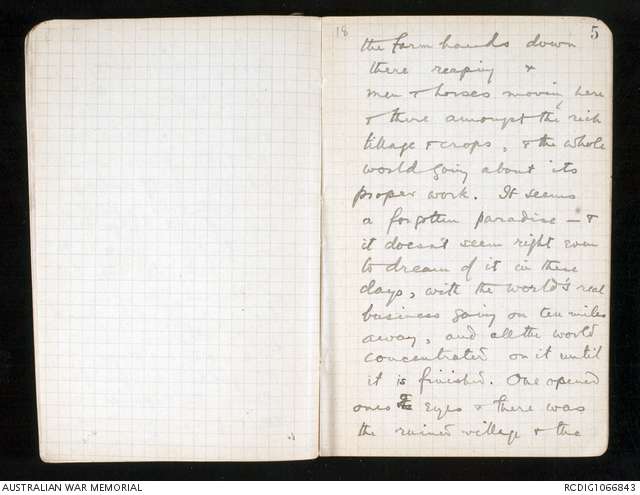 18
5
the farm hands down
there reaping &
men & horses moving here
& there amongst the rich
tillage & crops, & the whole
world going about its
proper work. It seems
a forgotten paradise - &
it doesn't seem right even
to dream of it in these
days, with the world's real
business going on ten miles
away, and all the world
concentrated on it until
it is finished. One opened
ones eyes & there was
the ruined village & the
AUSTRALIAN WAR MEMORIAL
RCDIG1066843